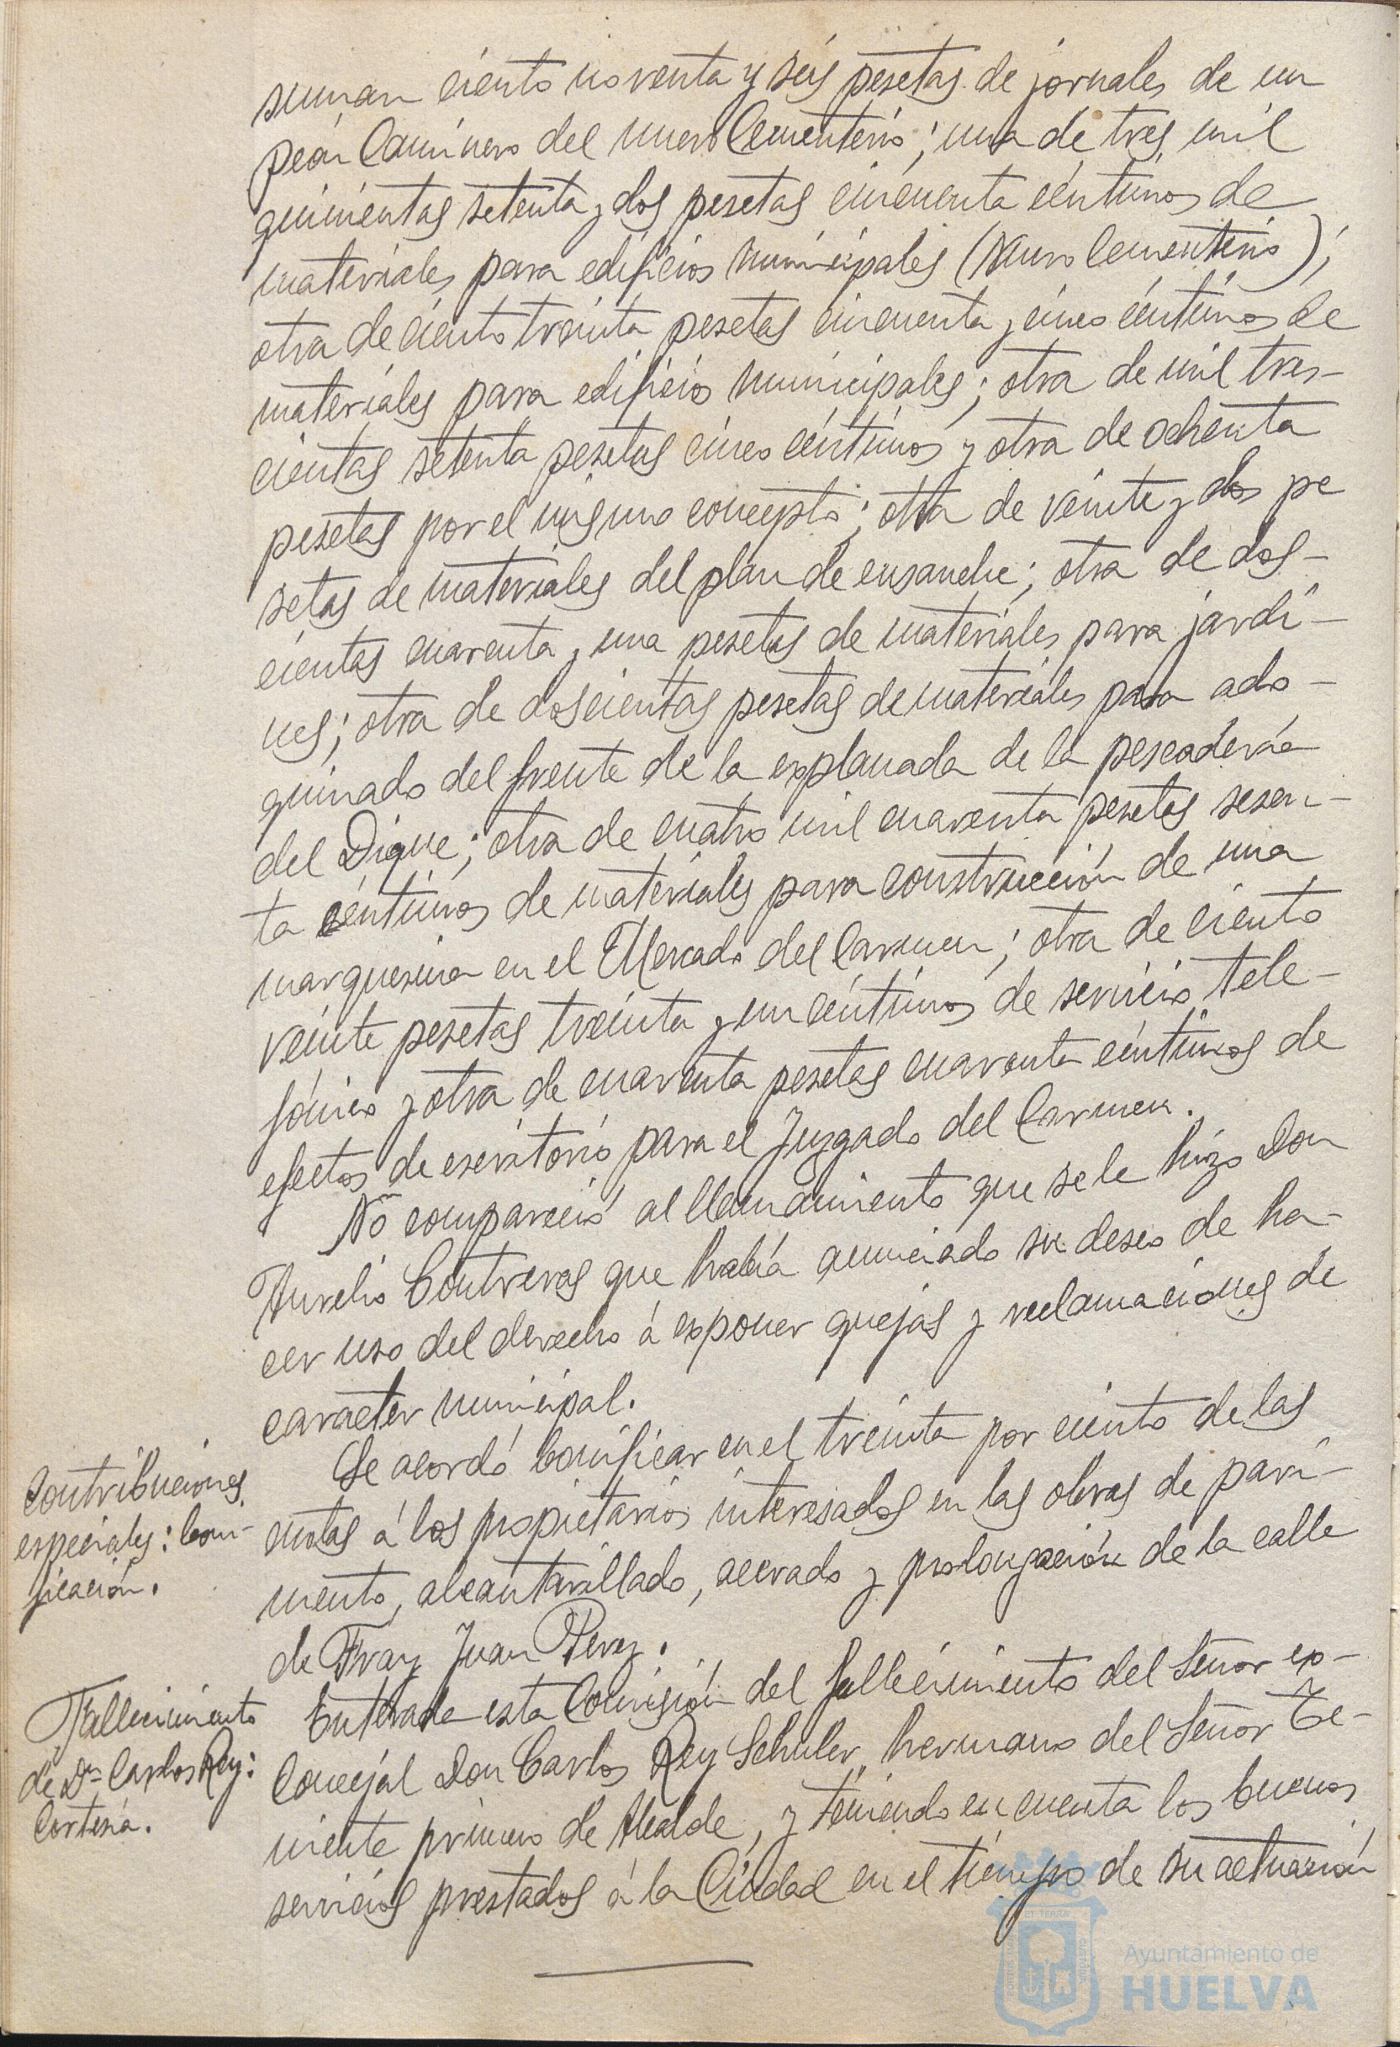 suman ciento noventa y seis pesetas de jornales de un
peón Caminero del nuevo Cementerio; una de tres mil
quinientas setenta y dos pesetas cincuenta céntimos de
materiales para edificios municipales (Muro Cementerio);
otra de ciento treinta pesetas cincuenta y cinco céntimos de
materiales para edificios municipales; otra de mil tres-
cientas setenta pesetas cinco céntimos y otra de ochenta
pesetas por el mismo concepto; otra de veinte y dos pe
setas de materiales del plan de ensanche; otra de dos-
cientas cuarenta y una pesetas de materiales para jardi-
nes; otra de doscientas pesetas de materiales para ado-
quinado del frente de la explanada de la pescadería
del Dique; otra de cuatro mil cuarenta pesetas sesen-
ta céntimos de materiales para construcción de una
marquesina en el Mercado del Carmen; otra de ciento
veinte pesetas treinta y un céntimos de servicio tele-
fónico y otra de cuarenta pesetas cuarenta céntimos de
efectos de escritorio para el Juzgado del Carmen.
No compareció al llamamiento que se le hizo Don
Aurelio Contreras que había anunciado su deseo de ha-
cer uso del derecho á exponer quejas y reclamaciones de
caracter municipal.
Contribuciones
especiales: boni-
ficación.
Se acordó bonificar en el treinta por ciento de las
cuotas á los propietarios interesados en las obras de pavi-
mento, alcantarillado, acerado y prolongación de la calle
de Fray Juan Pérez.
Fallecimiento
de Dn Carlos Rey:
Cortesía.
Enterada esta Comisión del fallecimiento del Señor ex-
Concejal Don Carlos Rey Schuler, hermano del Señor Te-
niente primero de Alcalde, y teniendo en cuenta los buenos
servicios prestados á la Ciudad en el tiempo de su actuación
Ayuntamiento de
HUELVA